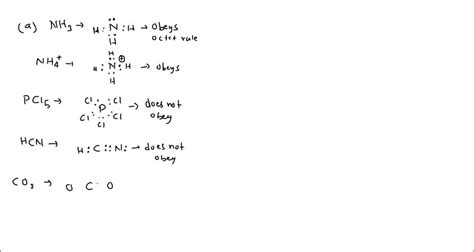 (a) NH₃ → H : N̈ : H → Obeys
H octet rule
H
NH₄⁺ → H : N : H → obeys
⊕
H
PCl₅ → Cl Cl Cl → does not
P obey
Cl Cl
HCN → H : C ::: N : → does not
obey
CO₂ → O C O